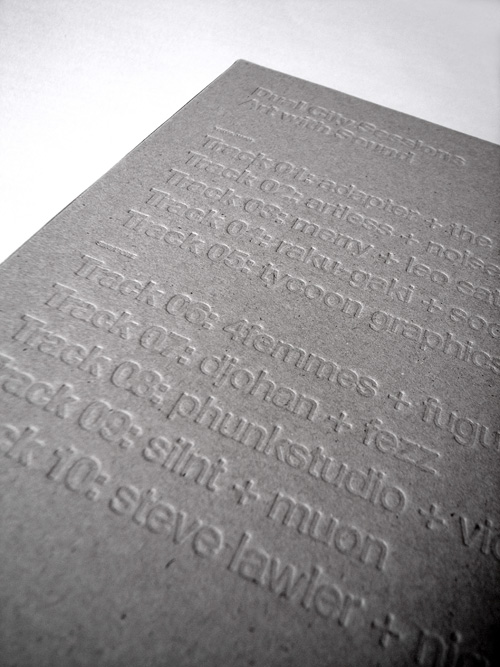 Dual City Sessions
Art with Sound
Track 01: adapter + the
Track 02: artless +
Track 03: merry + leo
Track 04: raku-gaki +
Track 05: tycoon graphics
Track 06: 4femmes + fugu
Track 07: djohan + fezz
Track 08: phunkstudio +
Track 09: silnt + muon
ck 10: steve lawler +